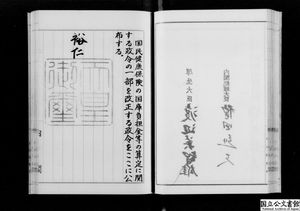 国民健康保険の国庫負担金等の算定に関
する政令の一部を改正する政令をここに公
布する。
裕仁
天皇
御璽
内閣総理大臣
福田赳夫
厚生大臣
渡辺美智雄
国立公文書館
National Archives of Japan